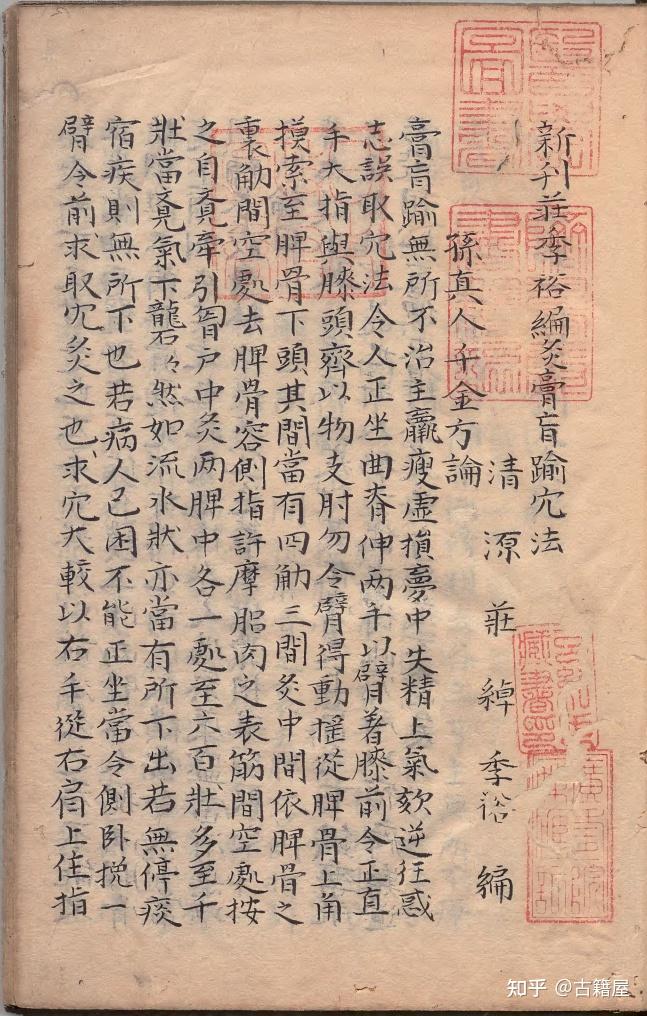 新刊莊季裕編灸膏肓腧穴法
清源莊綽季裕編
孫真人千金方論
膏肓腧無所不治主羸瘦虛損夢中失精上氣欬逆狂惑
志誤取穴法令人正坐曲脊伸两手以臂着膝前令正直
手大指與膝頭齊以物支肘勿令臂得動摇從胛骨上角
摸索至胛骨下頭其間當有四觔三間灸中間依胛骨之
裏觔間空處去胛骨容側指許摩䏚肉之表筋間空處按
之自覺牽引胷户中灸两胛中各一處至六百壯多至千
壯當覺氣下礲礲然如流水狀亦當有所下出若無停痰
宿疾則無所下也若病人已困不能正坐當令側卧挽一
臂令前求取穴灸之也求穴大較以右手從右肩上住指
知乎 @古籍屋